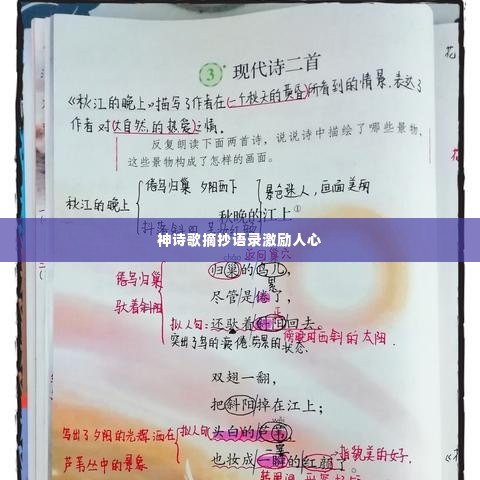 ③ 现代诗二首
《秋江的晚上》描写了作者在(一个秋天的黄昏)所看到的情景,表达了
作者对(大自然的热爱)之情。
反复朗读下面两首诗,说说诗中描绘了哪些景物,
这些景物构成了怎样的画面。
倦鸟归巢 夕阳西下
景色迷人,画面美丽
秋江的晚上
秋晚的江上①
神诗歌摘抄语录激励人心
返回巢穴
归巢的鸟儿,
倦鸟归巢
累
尽管是倦了,
驮着斜阳
拟人句:还驮着斜阳回去。
傍晚时西斜的太阳.
突出了鸟的疲倦,劳累的状态.
双翅一翻,
把斜阳掉在江上;
写出了夕阳的光辉洒在
拟人句 头白的芦苇,
芦苇丛中的景象
也妆成一瞬的红颜了。
指貌美的女子,